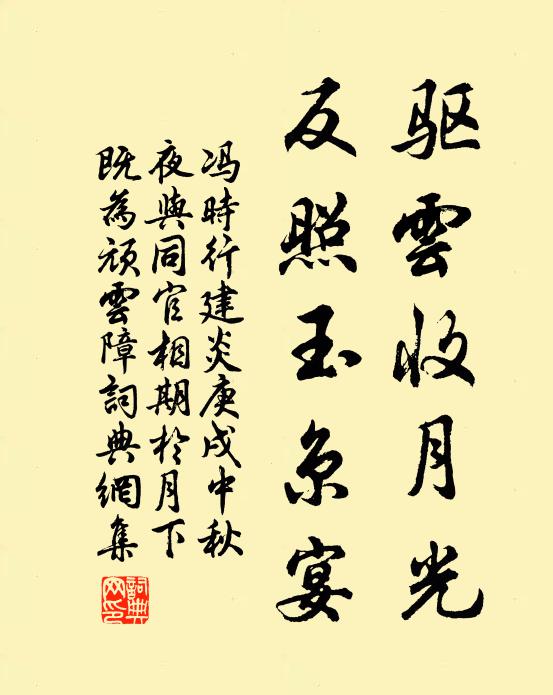 驱雲收月光
反照玉京宴
冯時行建炎庚戌中秋
夜與同官相期於月下
既為頑雲障詞典網集
詞典网印